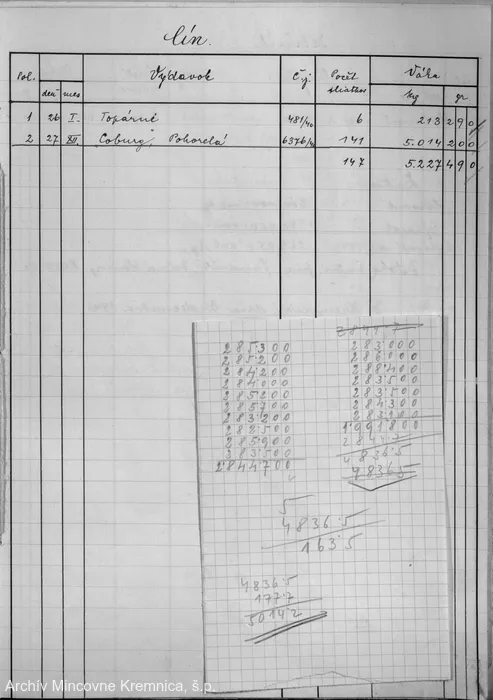 Cín.
Pol. Výdavok Č.j. Počet Váha
deň mes kg gr
1 26 I. Topárné 481/40 6 213 290
2 27 XII. Coburg, Pohorelá 141 5.014 200
147 5.227 490
285300
285200
284200
284000
285200
285700
283200
282500
285900
283500
2844700
283000
286000
288400
283500
283500
284300
1991800
28447
48365
48365
5
4836.5
163.5
4836.5
177.7
5014.2
Archív Mincovne Kremnica, š.p.